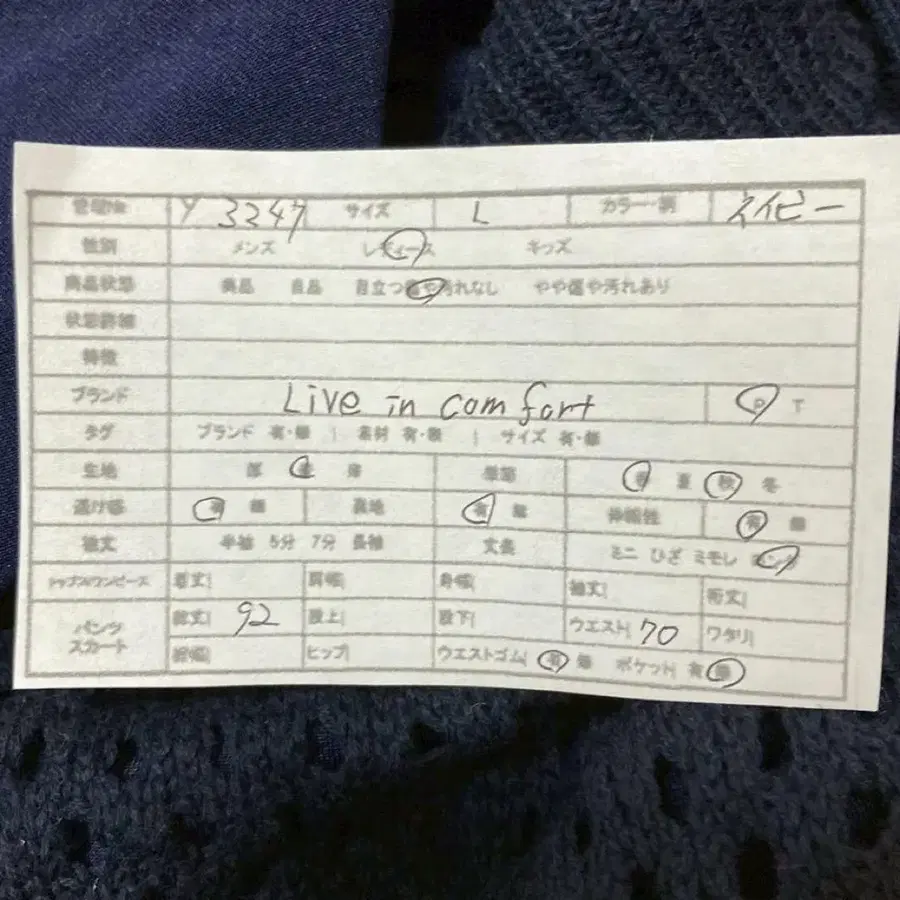 管理No Y 3247 サイズ L カラー・柄 ネイビー
性別 メンズ レディース キッズ
商品状態 美品 良品 目立つ傷や汚れなし やや傷や汚れあり
状態詳細
特徴
ブランド Live in comfort P T
タグ ブランド 有・無 | 素材 有・無 | サイズ 有・無
生地 厚 薄 季節 春 夏 秋 冬
透け感 有 無 裏地 有 無 伸縮性 有 無
袖丈 半袖 5分 7分 長袖 丈長 ミニ ひざ ミモレ
トップス/ワンピース 着丈| 肩幅| 身幅| 袖丈| 裄丈|
パンツ スカート 総丈| 92 股上| 股下| ウエスト| 70 ワタリ|
裾幅| ヒップ| ウエストゴム| 有 無 ポケット| 有 無